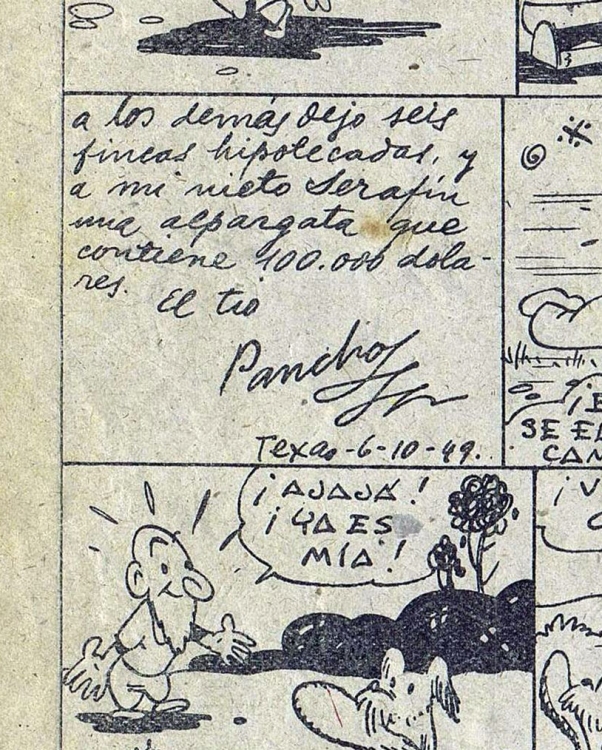 a los demás dejo seis
fincas hipotecadas, y
a mi nieto Serafín
una alpargata que
contiene 100.000 dola-
res.
El tio
Pancho
Texas-6-10-49.
¡E
SE EL
CAN
¡AJAJÁ!
¡YA ES
MÍA!
¡V